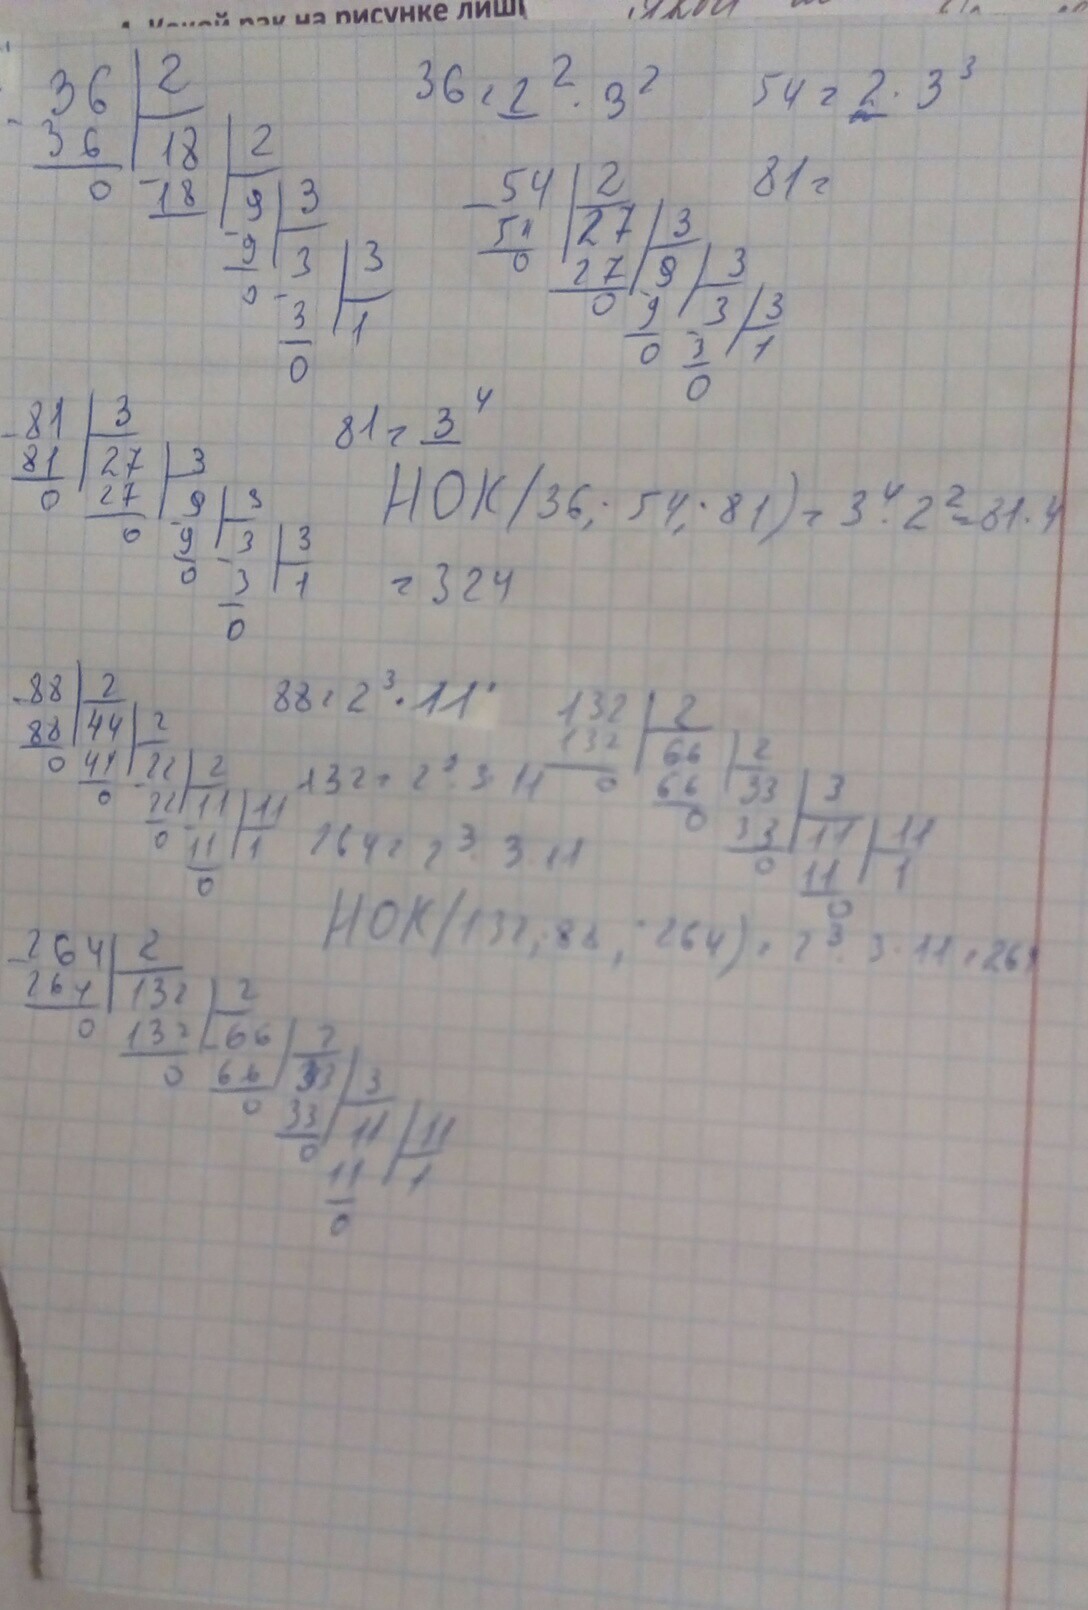 на рисунке
36 | 2
36 | 18 | 2
0
18 | 9 | 3
9 | 3 | 3
0
3 | 1
0
36 = 2² · 3²
54 = 2 · 3³
54 | 2
54 | 27 | 3
0
27 | 9 | 3
0
9 | 3 | 3
0
3 | 1
0
81 =
81 | 3
81 | 27 | 3
0
27 | 9 | 3
0
9 | 3 | 3
0
3 | 1
0
81 = 3⁴
НОК(36, 54, 81) = 3⁴ · 2² = 81 · 4
= 324
88 | 2
88 | 44 | 2
0
44 | 22 | 2
0
22 | 11 | 11
0
11 | 1
0
88 = 2³ · 11
132 = 2² · 3 · 11
264 = 2³ · 3 · 11
132 | 2
132 | 66 | 2
0
66 | 33 | 3
0
33 | 11 | 11
0
11 | 1
0
НОК(132, 88, 264) = 2³ · 3 · 11 = 264
264 | 2
264 | 132 | 2
0
132 | 66 | 2
0
66 | 33 | 3
0
33 | 11 | 11
0
11 | 1
0